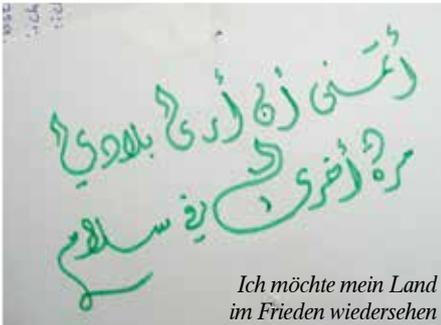 أتمنى أن أرى بلادي
مرة أخرى في سلام
Ich möchte mein Land
im Frieden wiedersehen